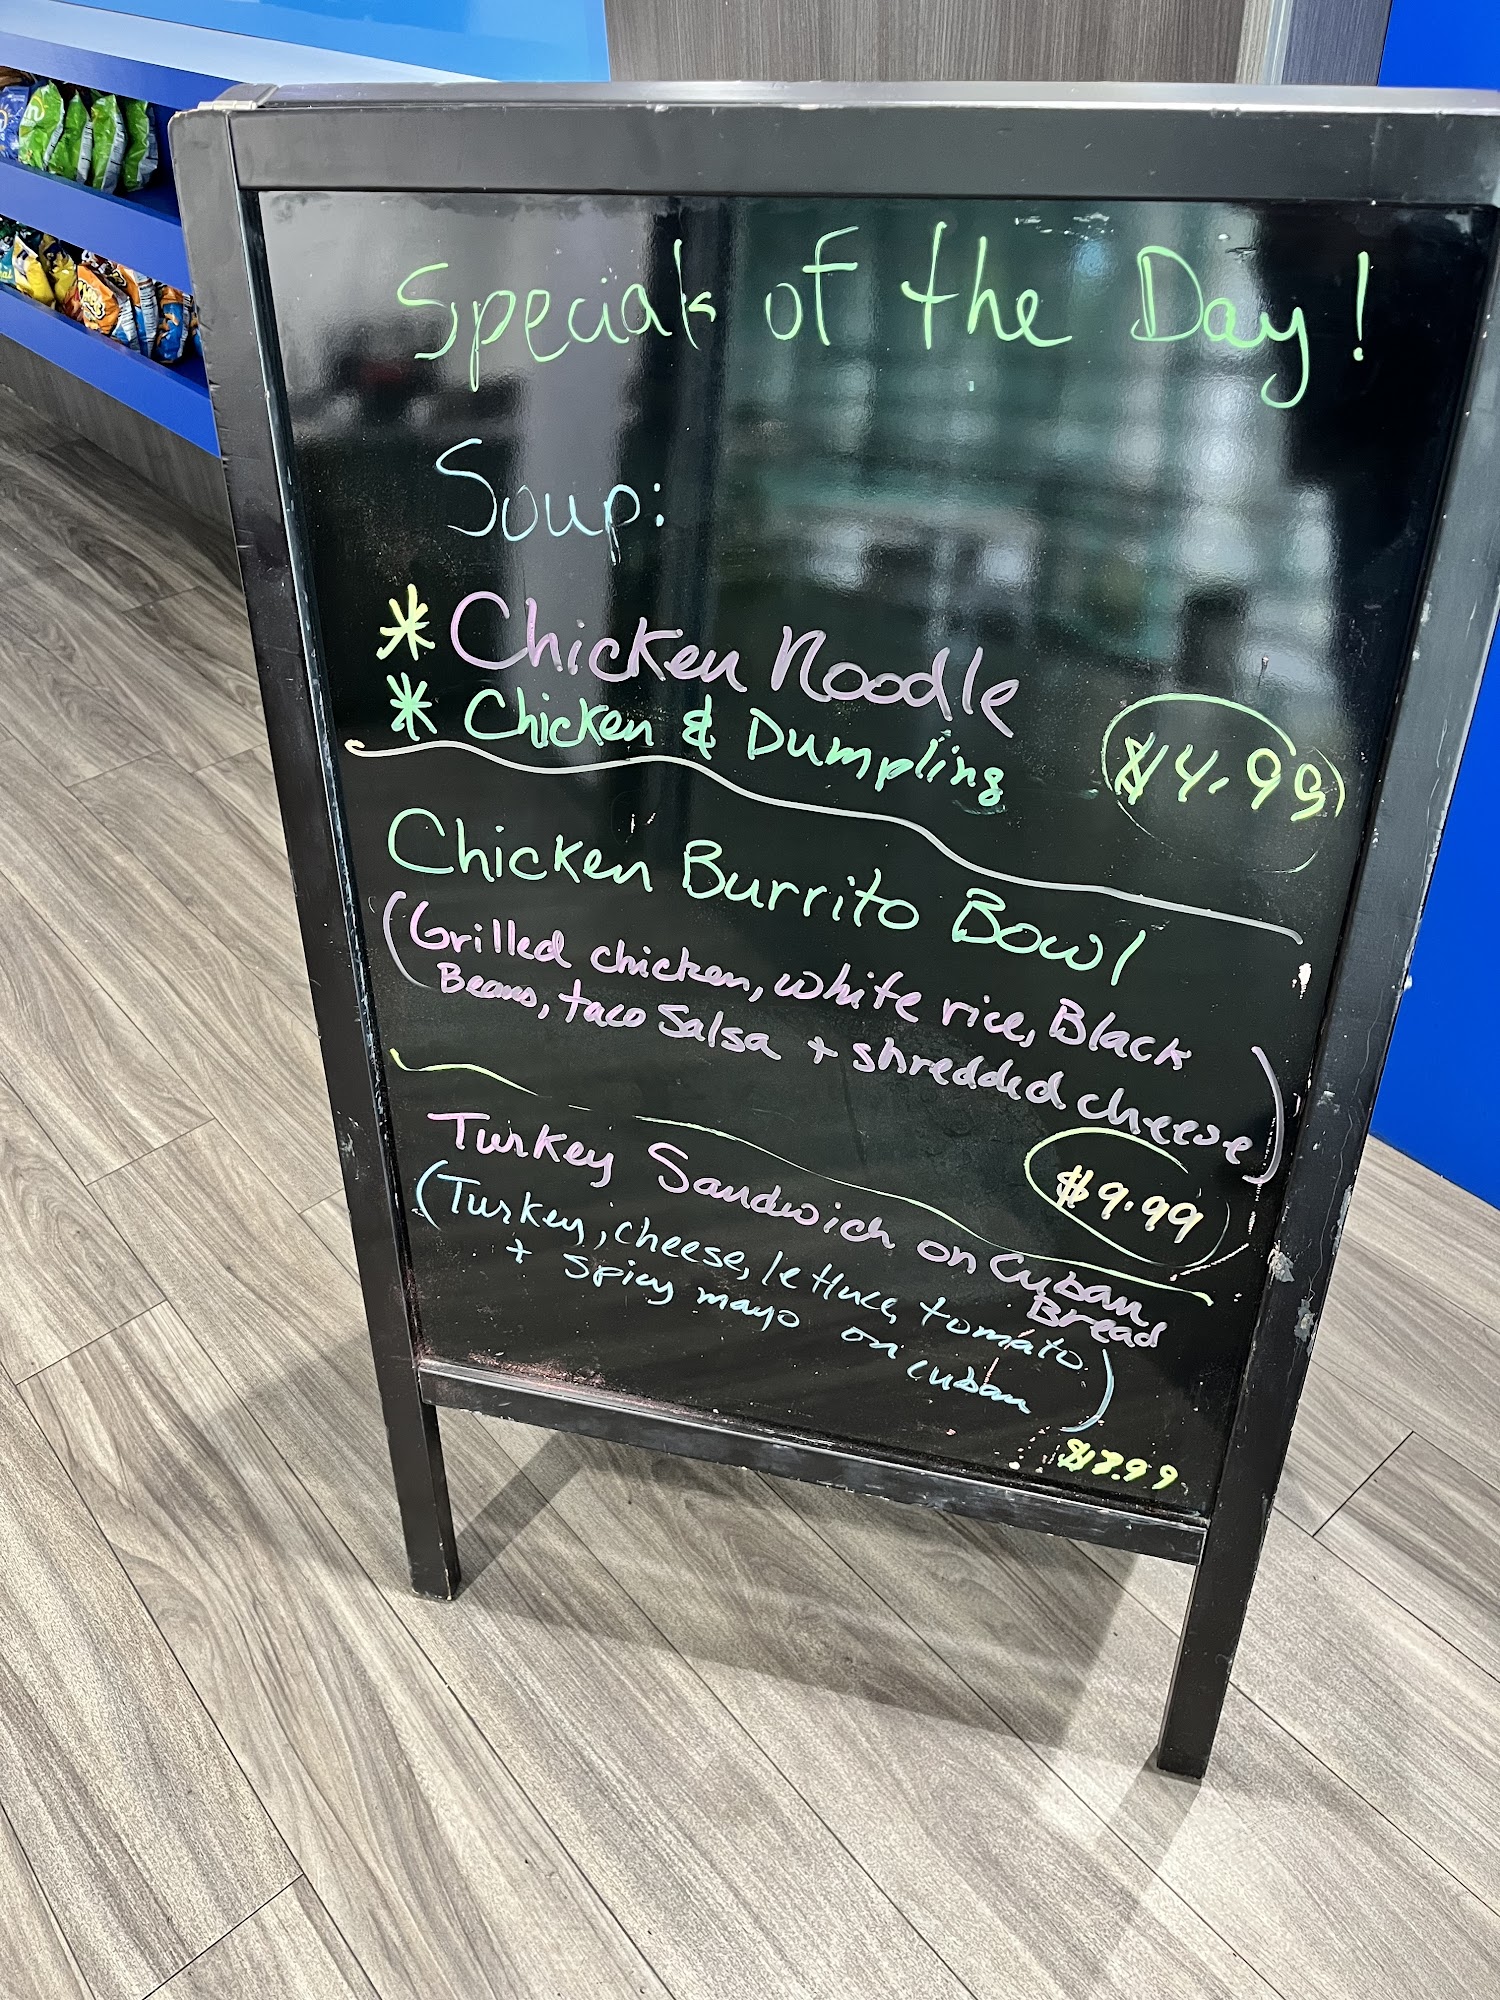 Specials of the Day!
Soup:
* Chicken Noodle
* Chicken & Dumpling
$4.99
Chicken Burrito Bowl
(Grilled chicken, white rice, Black
Beans, taco Salsa + shredded cheese)
$9.99
Turkey Sandwich on Cuban
Bread
(Turkey, cheese, lettuce, tomato
+ spicy mayo on cuban)